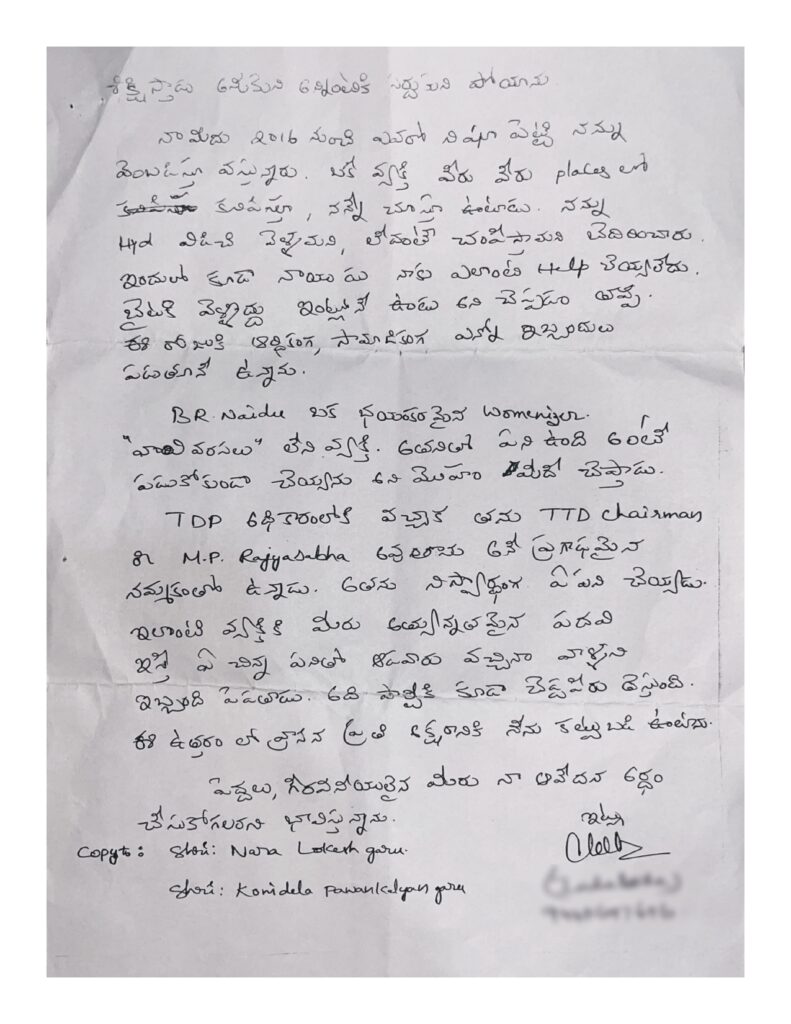 శిక్షిస్తాడు అనుకుని అన్నింటికి సర్దుకుని పోయాను.
నా మీద 2016 నుంచి ఎవరో నిఘా పెట్టి నన్ను
వెంబడిస్తూ వస్తున్నారు. ఒకే వ్యక్తి వేరు వేరు places లో
కనిపిస్తూ, నన్నే చూస్తూ ఉంటాడు. నన్ను
Hyd విడిచి వెళ్ళమని, లేదంటే చంపేస్తామని బెదిరించారు.
ఇందులో కూడా నాయుడు నాకు ఎలాంటి Help చెయ్యలేదు.
బైటకి వెళ్ళొద్దు ఇంట్లోనే ఉండు అని చెప్పడం తప్ప.
ఈ రోజుకి ఆర్థికంగ, సామాజికంగ ఎన్నో ఇబ్బందులు
పడుతూనే ఉన్నాను.
B.R. Naidu ఒక భయంకరమైన Womenizer.
"వావి వరసలు" లేని వ్యక్తి. అతనితో పని ఉంది అంటే
పడుకోకుండా చెయ్యను అని మొహం మీదే చెప్తాడు.
TDP అధికారంలోకి వచ్చాక తను TTD Chairman
or M.P. Rajyasabha అవుతాడు అనే ప్రగాఢమైన
నమ్మకంతో ఉన్నాడు. అతను నిస్వార్థంగ ఏ పని చెయ్యడు.
ఇలాంటి వ్యక్తికి మీరు అత్యున్నతమైన పదవి
ఇస్తే ఏ చిన్న పనితో ఆడవారు వచ్చినా వాళ్ళని
ఇబ్బంది పెడతాడు. అది పార్టీకి కూడా చెడ్డపేరు తెస్తుంది.
ఈ ఉత్తరం లో వ్రాసిన ప్రతి అక్షరానికి నేను కట్టుబడి ఉంటాను.
పెద్దలు, గౌరవనీయులైన మీరు నా ఆవేదన అర్థం
చేసుకోగలరని భావిస్తున్నాను.
ఇట్లు
Copy to: Shri: Nara Lokesh garu.
Shri: Konidela Pawankalyan garu